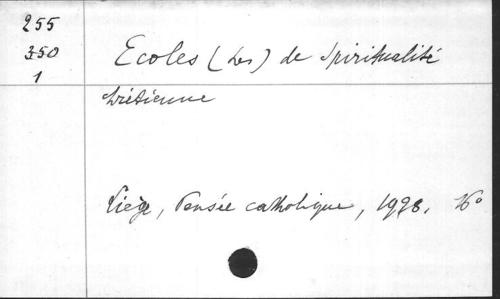 255
350
1
Ecoles (Les) de Spiritualité
chrétienne
Liège, Pensée catholique, 1928. 16°